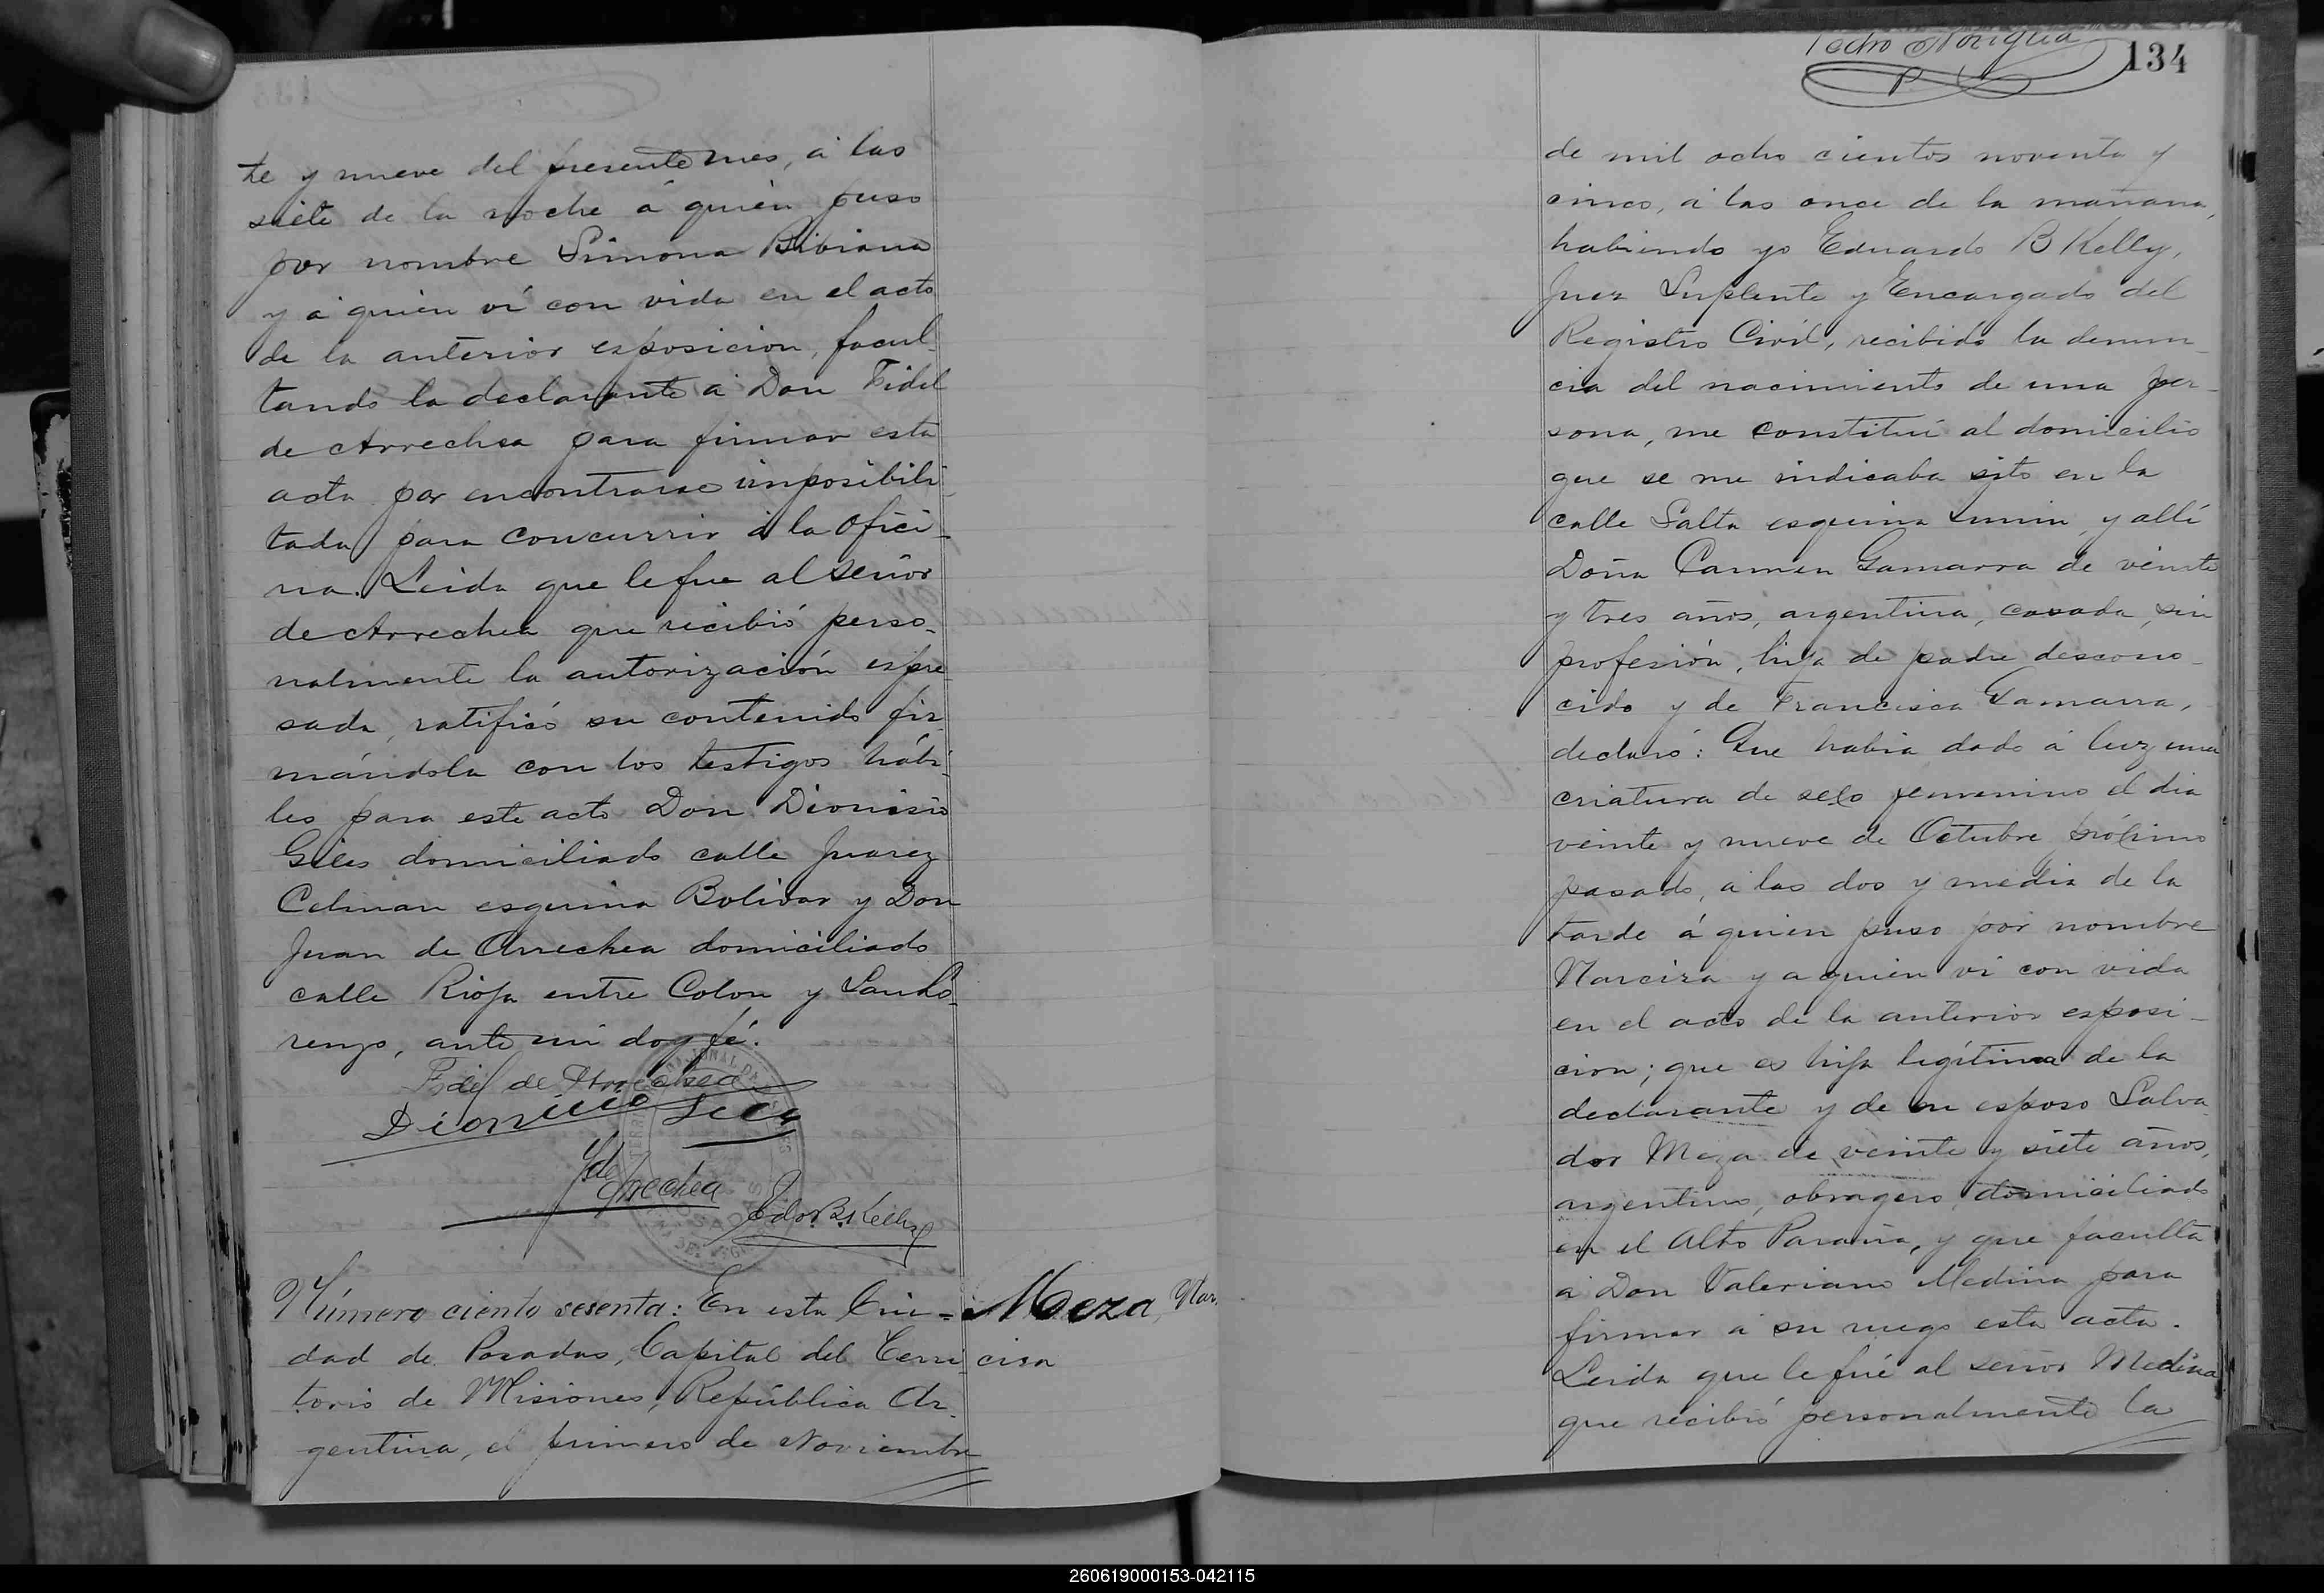 te y nueve del presente mes, á las
siete de la noche á quién puso
por nombre Simona Bibiana
y á quién ví con vida en el acto
de la anterior esposicion, facul-
tando la declarante á Don Fidel
de Arrechea para firmar esta
acta por encontrarse imposibili-
tada para concurrir á la Ofici-
na. Leida que le fue al señor
de Arrechea que recibió perso-
nalmente la autorización espre-
sada, ratificó su contenido fir-
mándola con los testigos hábi-
les para este acto Don Dionisio
Giles domiciliado calle Juarez
Celman esquina Bolivar y Don
Juan de Arrechea domiciliado
calle Rioja entre Colon y San Lo-
renzo, ante mi doy fé.
Fidel de Arrechea
Dionicio
J de Arrechea
Edo. B. Kelly
Número ciento sesenta: En esta Ciu-
dad de Posadas, Capital del Terri-
torio de Misiones, República Ar-
gentina, el primero de Noviembre
Meza, Nar-
cisa
Pedro Noriega
134
de mil ocho cientos noventa y
cinco, á las once de la mañana,
habiendo yo Eduardo B Kelly,
Juez Suplente y Encargado del
Registro Civil, recibido la denun-
cia del nacimiento de una per-
sona, me constituí al domicilio
que se me indicaba sito en la
calle Salta esquina y allí
Doña Carmen Gamarra de veinte
y tres años, argentina, casada, sin
profesión, hija de padre descono-
cido y de Francisca Gamarra,
declaró: Que habia dado á luz una
criatura de sexo femenino el dia
veinte y nueve de Octubre próximo
pasado, á las dos y media de la
tarde á quién puso por nombre
Narcisa y a quién vi con vida
en el acto de la anterior esposi-
cion; que es hija legítima de la
declarante y de su esposo Salva-
dor Meza de veinte y siete años,
argentino, obragero, domiciliado
en el Alto Paraná, y que faculta
á Don Valeriano Medina para
firmar á su ruego esta acta.
Leida que le fué al señor Medina
que recibió personalmente la
260619000153-042115